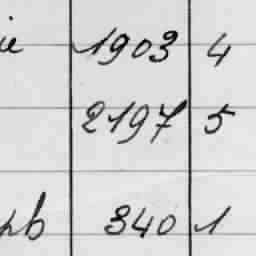 ie 1903 4
2197 5
pb 340 1